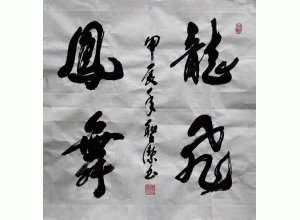 龍飛
甲辰年
鳳舞